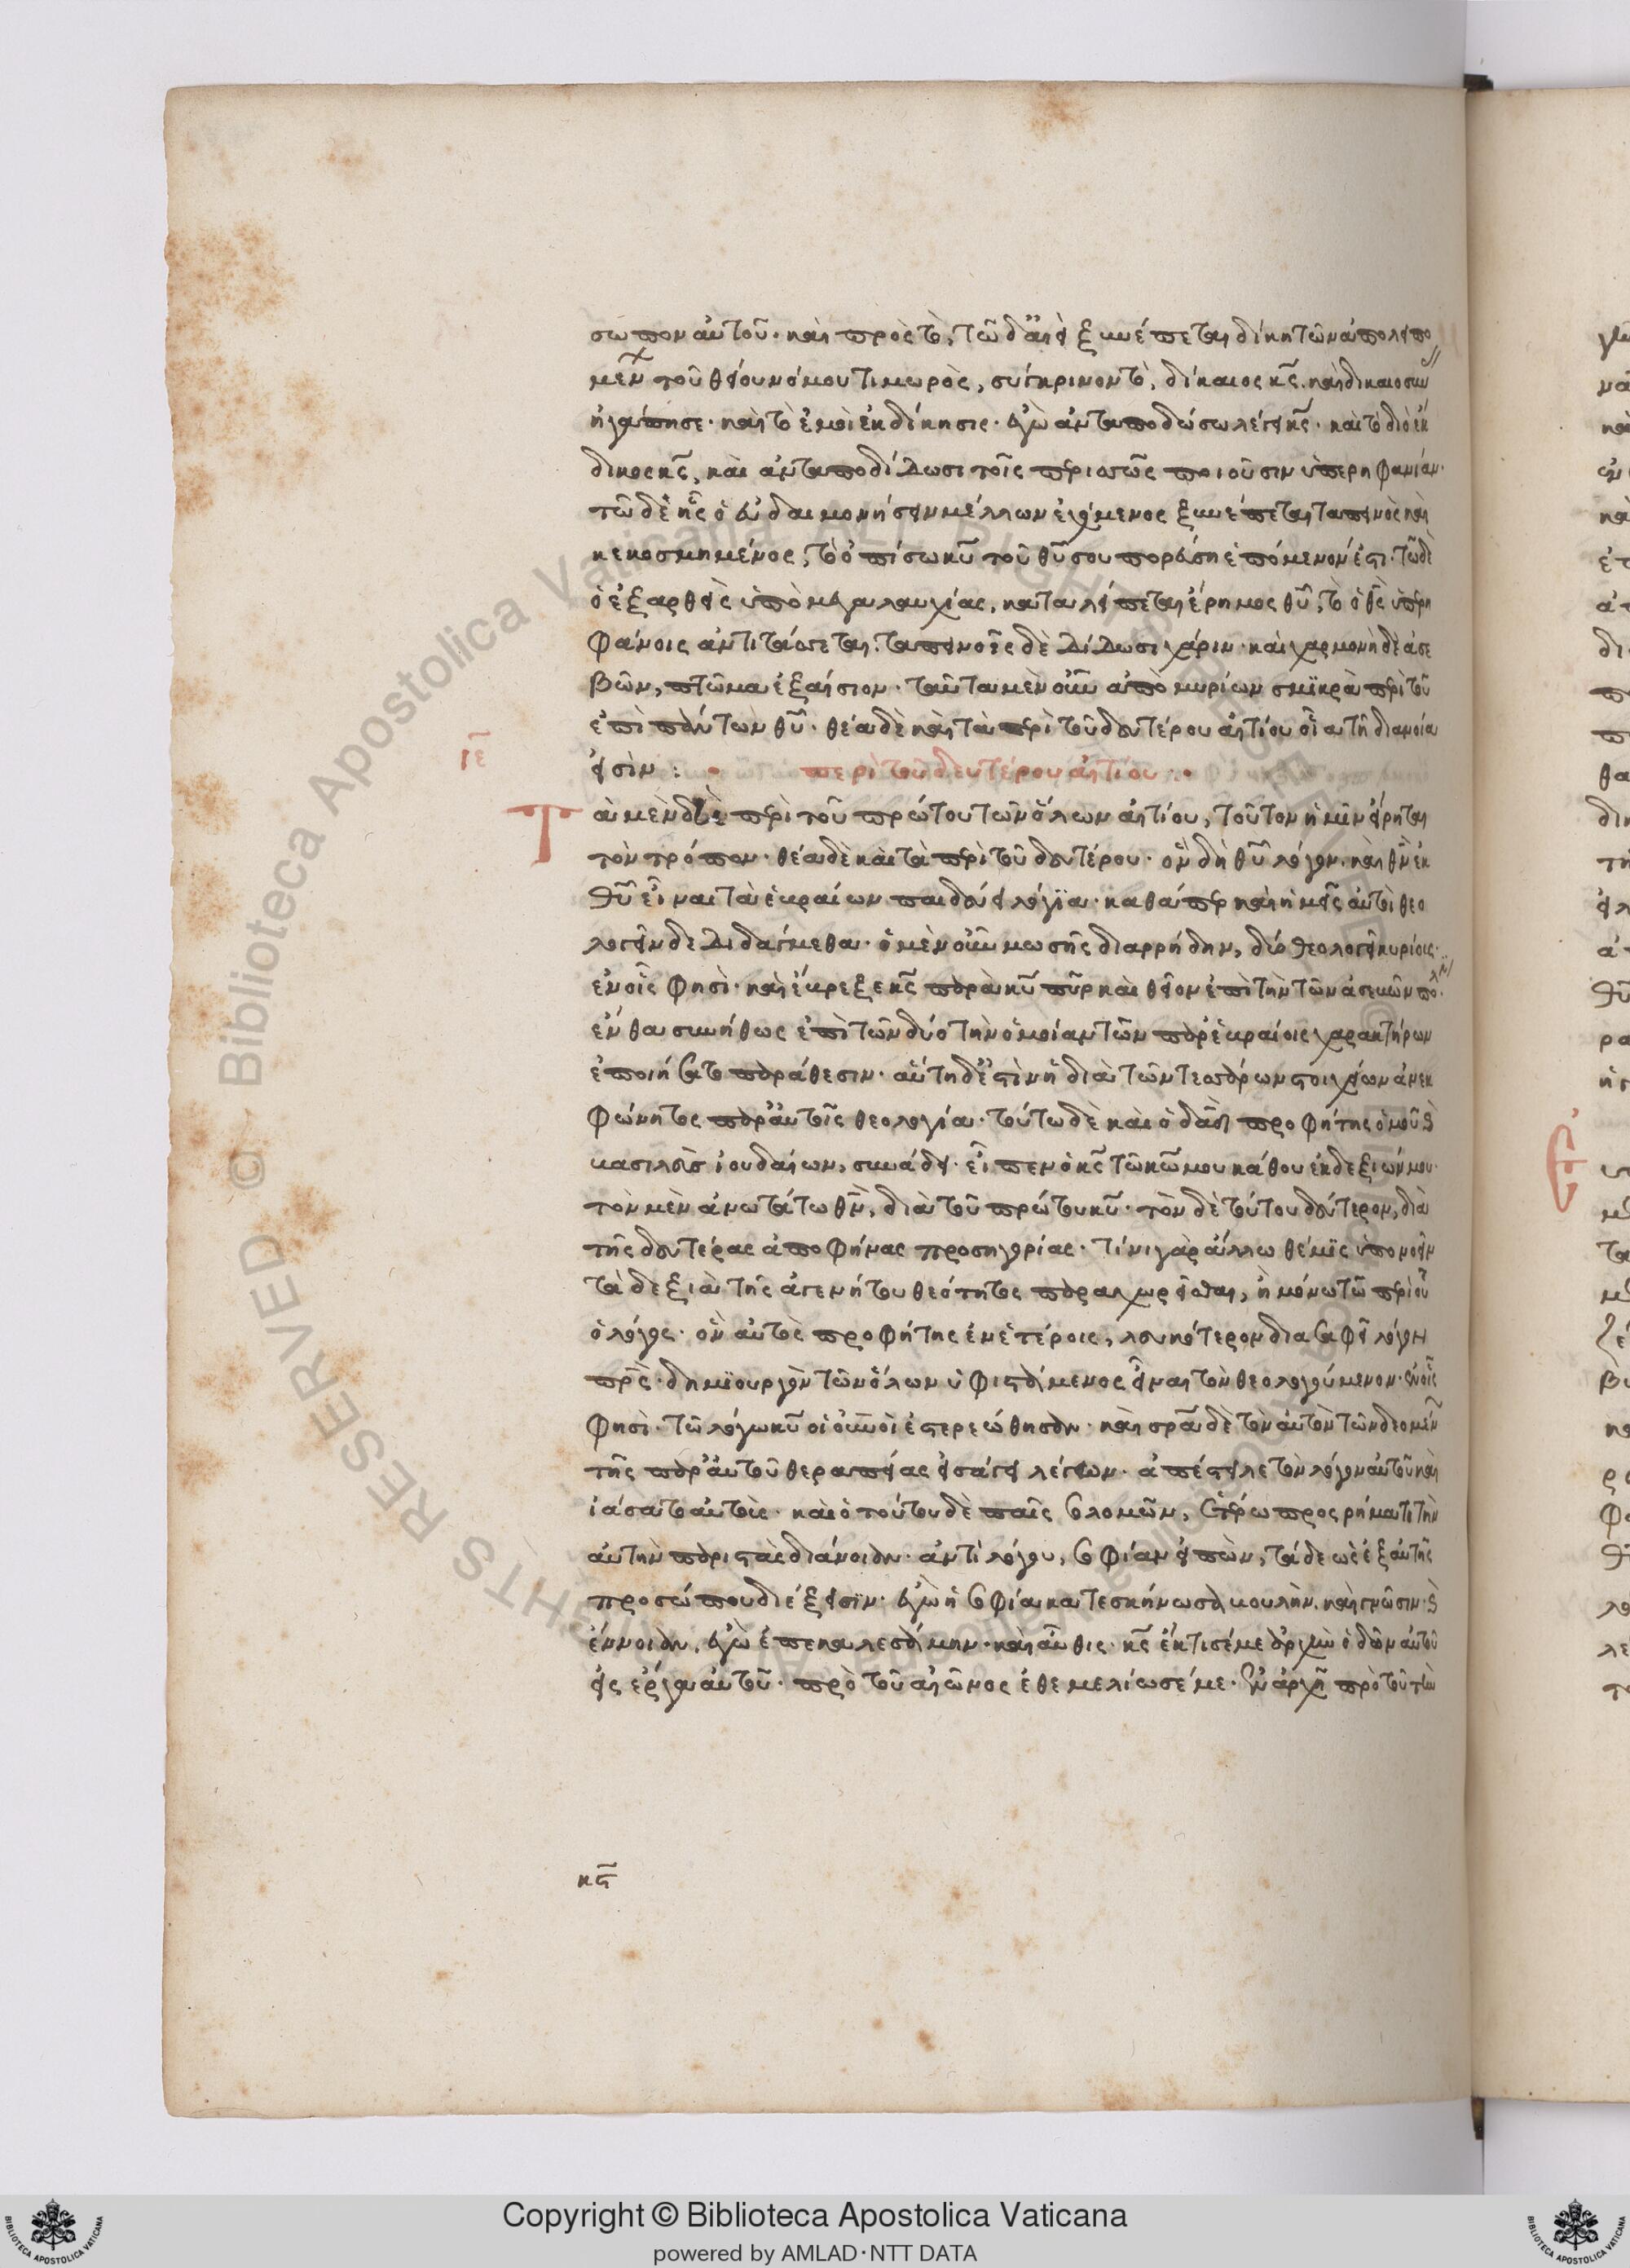 σωπον αὐτοῦ· καὶ πρὸς τὸ, τῶ δ' ἀεὶ ξυνέπεται δίκη τῶν ἀπολειπο
μένων τοῦ θείου νόμου τιμωρὸς, σύγκρινον τὸ, δίκαιος κς̅ καὶ δικαιοσύν
ἠγάπησε· καὶ τὸ ἐμοὶ ἐκδίκησις· ἐγὼ ἀνταποδώσω λέγει κς̅· καὶ τὸ διὸ ἐκ
δικος κς̅, καὶ ἀνταποδίδωσι τοῖς περισσῶς ποιοῦσιν ὑπερηφανίαν·
τῶ δὲ ἧς ὁ εὐδαιμονήσειν μέλλων ἐχόμενος ξυνέπεται ταπεινὸς καὶ
κεκοσμημένος, τὸ ὀπίσω κυ̅ τοῦ θυ̅ σου πορεύσῃ ἑπόμενόν ἐστι· τῶ δὲ
ὁ ἐξαρθεὶς ὑπὸ μεγαλαυχίας, καταλείπεται ἔρημος θυ̅, τὸ ὁ θς̅ ὑπερη
φάνοις ἀντιτάσσεται. ταπεινοῖς δὲ δίδωσι χάριν· καὶ χαρμονὴ δὲ ἀσε
βῶν, πτῶμα ἐξαίσιον· ταῦτα μὲν οὖν ἀπὸ μυρίων σμϊκρὰ περὶ τοῦ
ἐπὶ πάντων θυ̅· θέα δὲ καὶ τὰ περὶ τοῦ δευτέρου αἰτίου οἷα τῆ διανοία
εἰσίν :
ιε̅
περὶ τοῦ δευτέρου αἰτίου :
Τὰ μὲν δὴ περὶ τοῦ πρώτου τῶν ὅλων αἰτίου, τοῦτον ἡμῖν εἴρηται
τὸν τρόπον· θέα δὲ καὶ τὰ περὶ τοῦ δευτέρου· ὃν δὴ θυ̅ λόγον. καὶ θν̅ ἐκ
θυ̅ εἶναι τὰ ἑβραίων παιδεύει λόγϊα· καθάπερ καὶ ἡμεῖς αὐτοὶ θεο
λογεῖν δεδιδάγμεθα· ὁ μὲν οὖν μωσῆς διαρρήδην, δύο θεολογεῖ κυρίους·
ἐν οἷς φησὶ· καὶ ἔβρεξε κς̅ παρὰ κυ̅ πῦρ καὶ θεῖον ἐπὶ τὴν τῶν ἀσεβῶν πόλιν·
ἔνθα συνήθως ἐπὶ τῶν δύο τὴν ὁμοίαν τῶν παρ' ἑβραίοις χαρακτήρων
ἐποιήσατο παράθεσιν· αὕτη δ' ἐστὶν ἡ διὰ τῶν τεσσάρων στοιχείων ἀνεκ
φώνητος παρ' αὐτοῖς θεολογία· τούτω δὲ καὶ ὁ δαδ̅ προφήτης ὁμοῦ καὶ
βασιλεὺς ἰουδαίων, συνάδει· εἶπεν ὁ κς̅ τῶ κω̅ μου κάθου ἐκ δεξιῶν μου·
τὸν μὲν ἀνωτάτω θν̅, διὰ τοῦ πρώτου κυ̅· τὸν δὲ τούτου δεύτερον, διὰ
τῆς δευτέρας ἀποφήνας προσηγορίας· τίνι γὰρ ἄλλω θέμϊς ὑπονοεῖν
τὰ δεξιὰ τῆς ἀγενήτου θεότητος παραχωρεῖσθαι, ἢ μόνω τῶ περὶ οὗ
ὁ λόγος· ὃν αὐτὸς προφήτης ἐν ἑτέροις, λευκότερον διασαφεῖ λόγον
πρς̅· δημϊουργὸν τῶν ὅλων ὑφιστάμενος εἶναι τὸν θεολογούμενον· ἐν οἷς
φησὶ· τῶ λόγω κυ̅ οἱ οὐνοὶ ἐστερεώθησαν· καὶ σρα̅ δὲ τὸν αὐτὸν τῶν δεομέν
τῆς παρ' αὐτοῦ θεραπείας εἰσάγει λέγων· ἀπέστειλε τὸν λόγον αὐτοῦ καὶ
ἰάσατο αὐτούς· καὶ ὁ τούτου δὲ παῖς σολομῶν, ἑτέρω προσρήματι τὴν
αὐτὴν παρίστας διάνοιαν· ἀντὶ λόγου, σοφίαν εἰπὼν, τάδε ὡς ἐξ αὐτῆς
προσώπου διέξεισϊν· ἐγὼ ἡ σοφία κατεσκήνωσα βουλὴν. καὶ γνῶσιν καὶ
ἔννοιαν, ἐγὼ ἐπεκαλεσάμην· καὶ αὖθις· κς̅ ἔκτισέ με ἀρχὴν ὁδῶν αὐτοῦ
εἰς ἔργα αὐτοῦ· πρὸ τοῦ αἰῶνος ἐθεμελίωσέ με· ἐν ἀρχῆ πρὸ τοῦ τὴν
κς̅